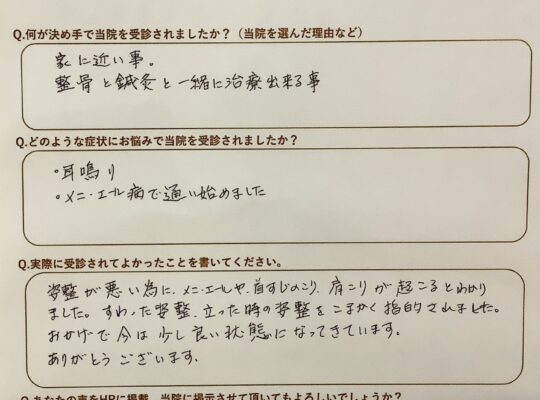 Q.何が決め手で当院を受診されましたか？（当院を選んだ理由など）
家に近い事。
整骨と鍼灸と一緒に治療出来る事
Q.どのような症状にお悩みで当院を受診されましたか？
・耳鳴り
・メニ・エール病で通い始めました
Q.実際に受診されてよかったことを書いてください。
姿整が悪い為に、メニ・エールや、首すじのこり、肩こりが起こるとわかり
ました。すわった姿整、立った時の姿整をこまかく指的されました。
おかげで今は少し良い状態になってきています。
ありがとうございます。
Q.あなたの声をHPに掲載、当院に掲示させて頂いてもよろしいでしょうか？